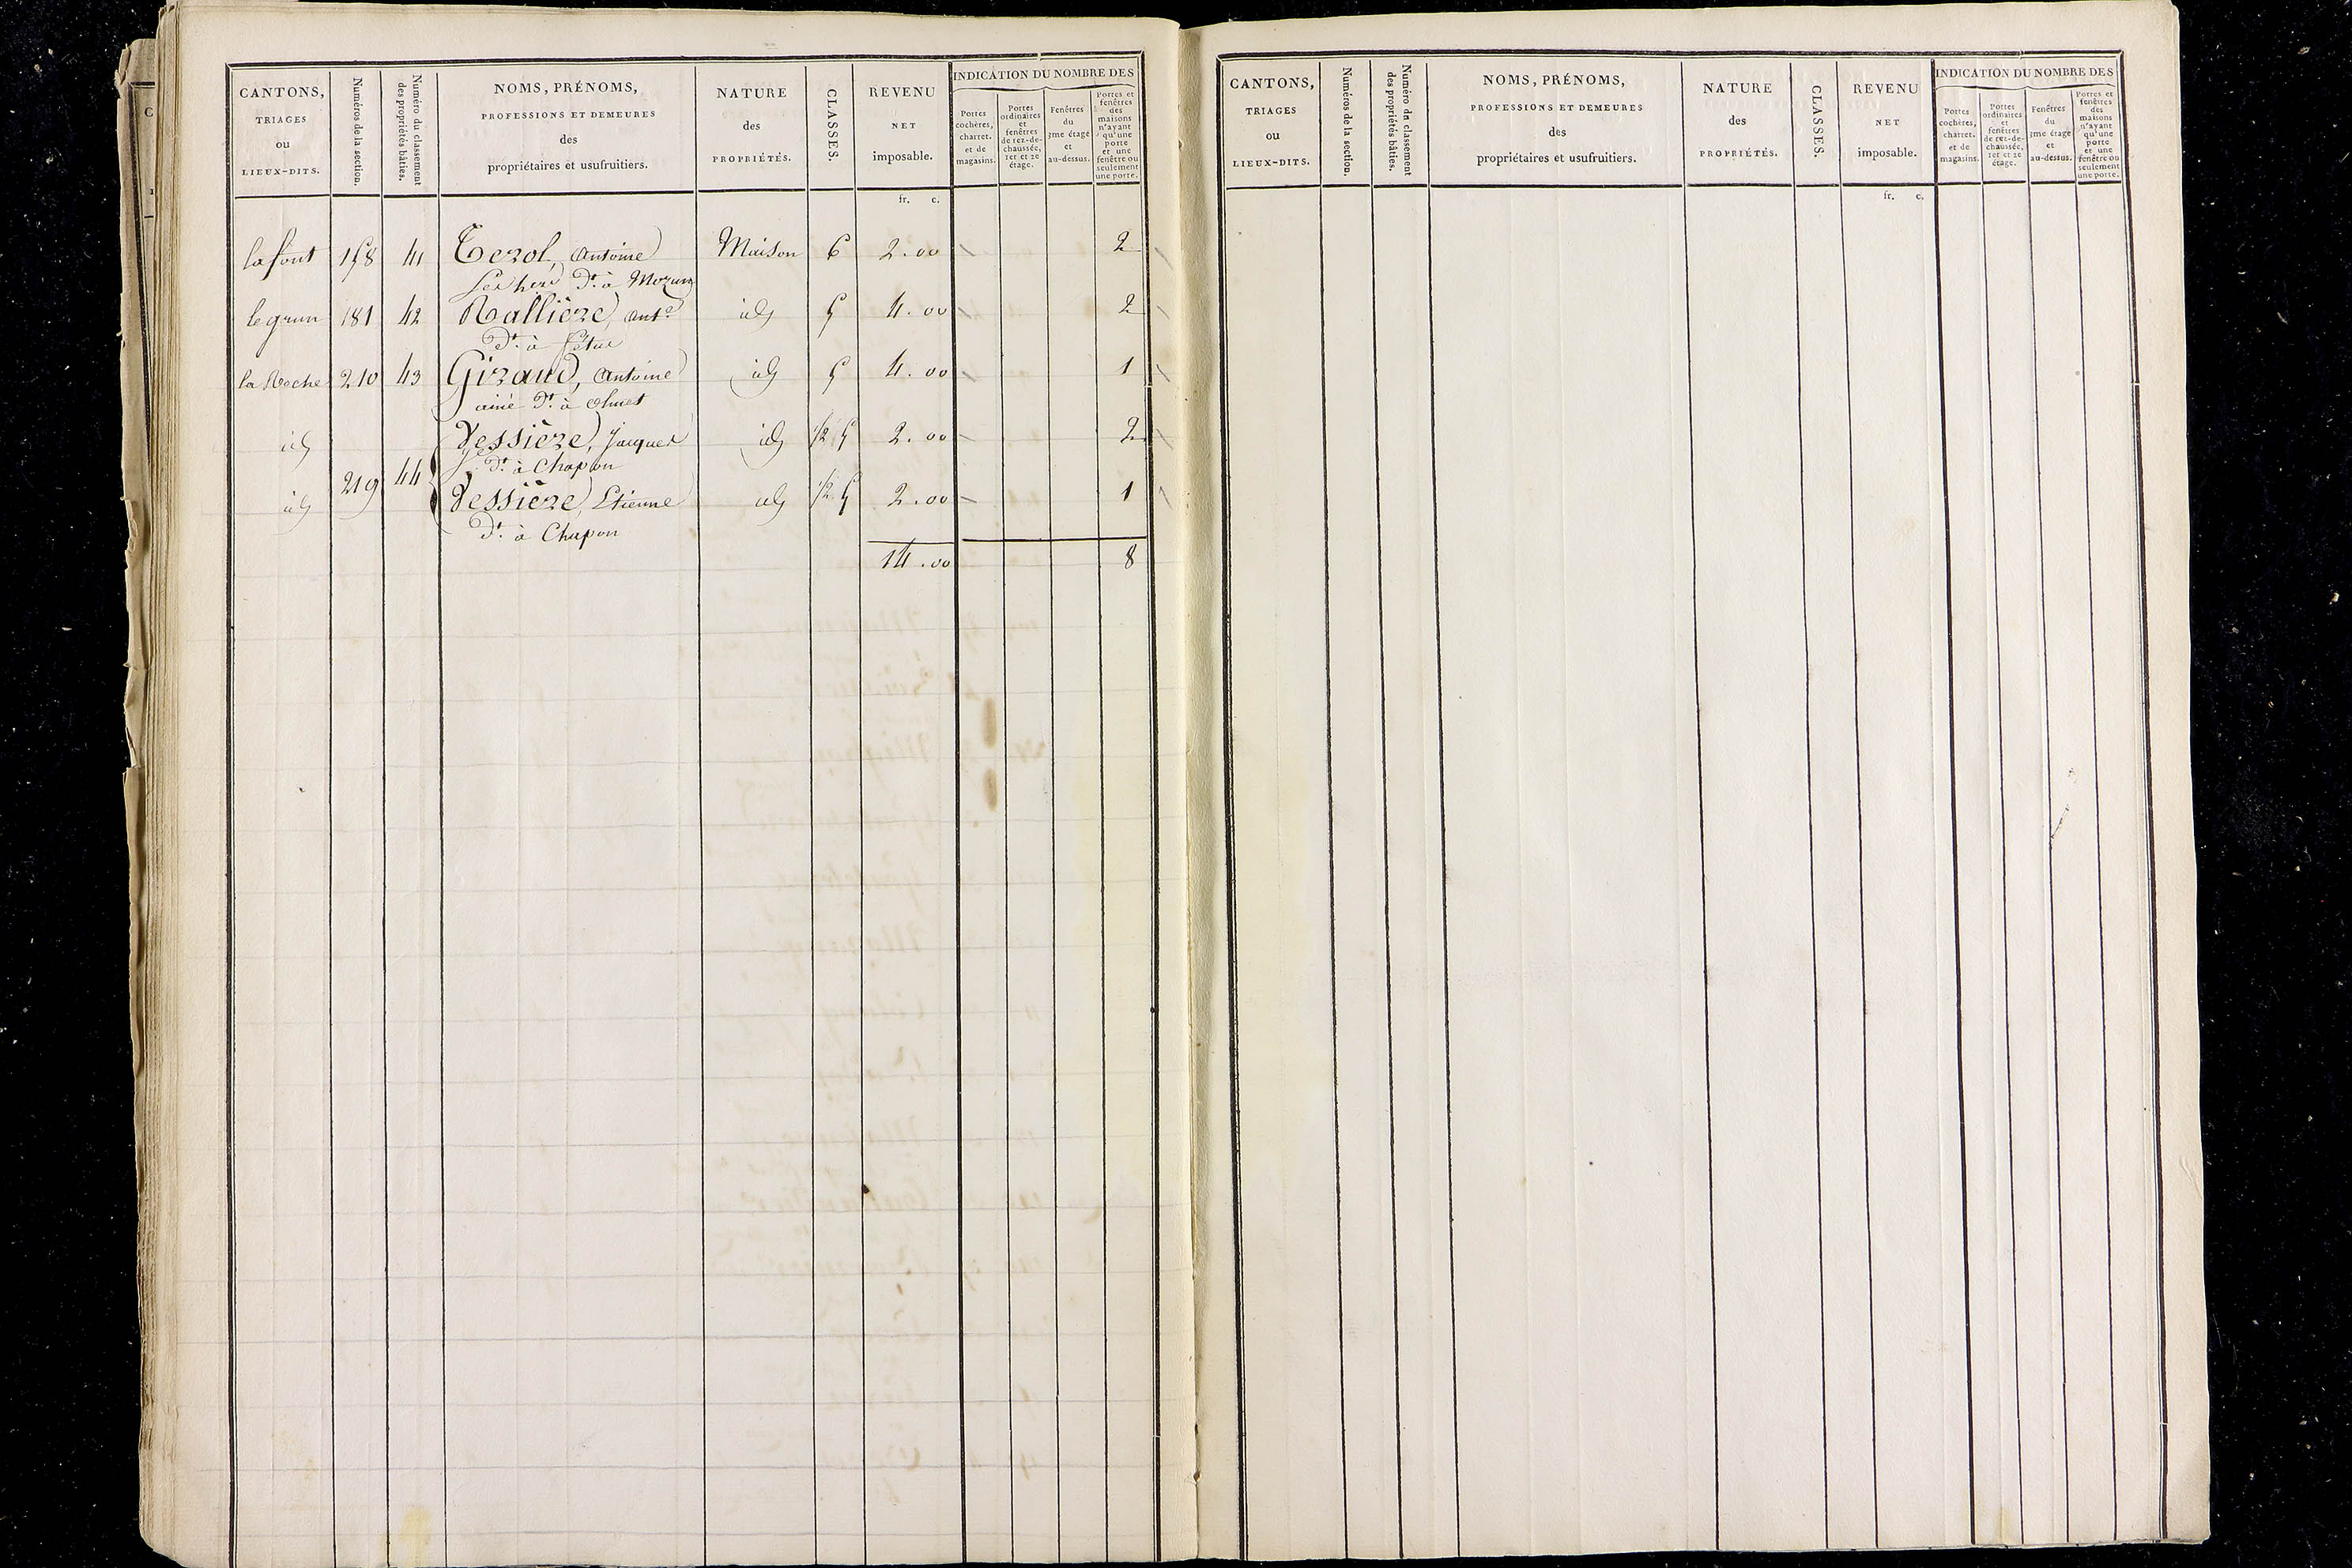 CANTONS,
TRIAGES
ou
LIEUX-DITS.
Numéros de la section.
Numéro du classement
des propriétés bâties.
NOMS, PRÉNOMS,
PROFESSIONS ET DEMEURES
des
propriétaires et usufruitiers.
NATURE
des
PROPRIÉTÉS.
CLASSES.
REVENU
NET
imposable.
INDICATION DU NOMBRE DES
Portes
cochères,
charret.
et de
magasins.
Portes
ordinaires
et
fenêtres
de rez-de-
chaussée,
1er et 2e
étage.
Fenêtres
du
3me étage
et
au-dessus.
Portes et
fenêtres
des
maisons
n'ayant
qu'une
porte
et une
fenêtre ou
seulement
une porte.
fr. c.
la font 158 41 Terol, Antoine Maison 6 2.00 2
Dt. à Mozun
le grun 181 42 Rallière, Antne id 5 4.00 2
Dt. à
la Roche 210 43 Giraud, Antoine id 5 4.00 1
ainé Dt. à Olmet
id Vessière, Jacques id 1/2 5 2.00 2
Dt. à Chapon
219 44
id Vessière, Etienne id 1/2 5 2.00 1
Dt. à Chapon
14.00 8
CANTONS,
TRIAGES
ou
LIEUX-DITS.
Numéros de la section.
Numéro du classement
des propriétés bâties.
NOMS, PRÉNOMS,
PROFESSIONS ET DEMEURES
des
propriétaires et usufruitiers.
NATURE
des
PROPRIÉTÉS.
CLASSES.
REVENU
NET
imposable.
INDICATION DU NOMBRE DES
Portes
cochères,
charret.
et de
magasins.
Portes
ordinaires
et
fenêtres
de rez-de-
chaussée,
1er et 2e
étage.
Fenêtres
du
3me étage
et
au-dessus.
Portes et
fenêtres
des
maisons
n'ayant
qu'une
porte
et une
fenêtre ou
seulement
une porte.
fr. c.